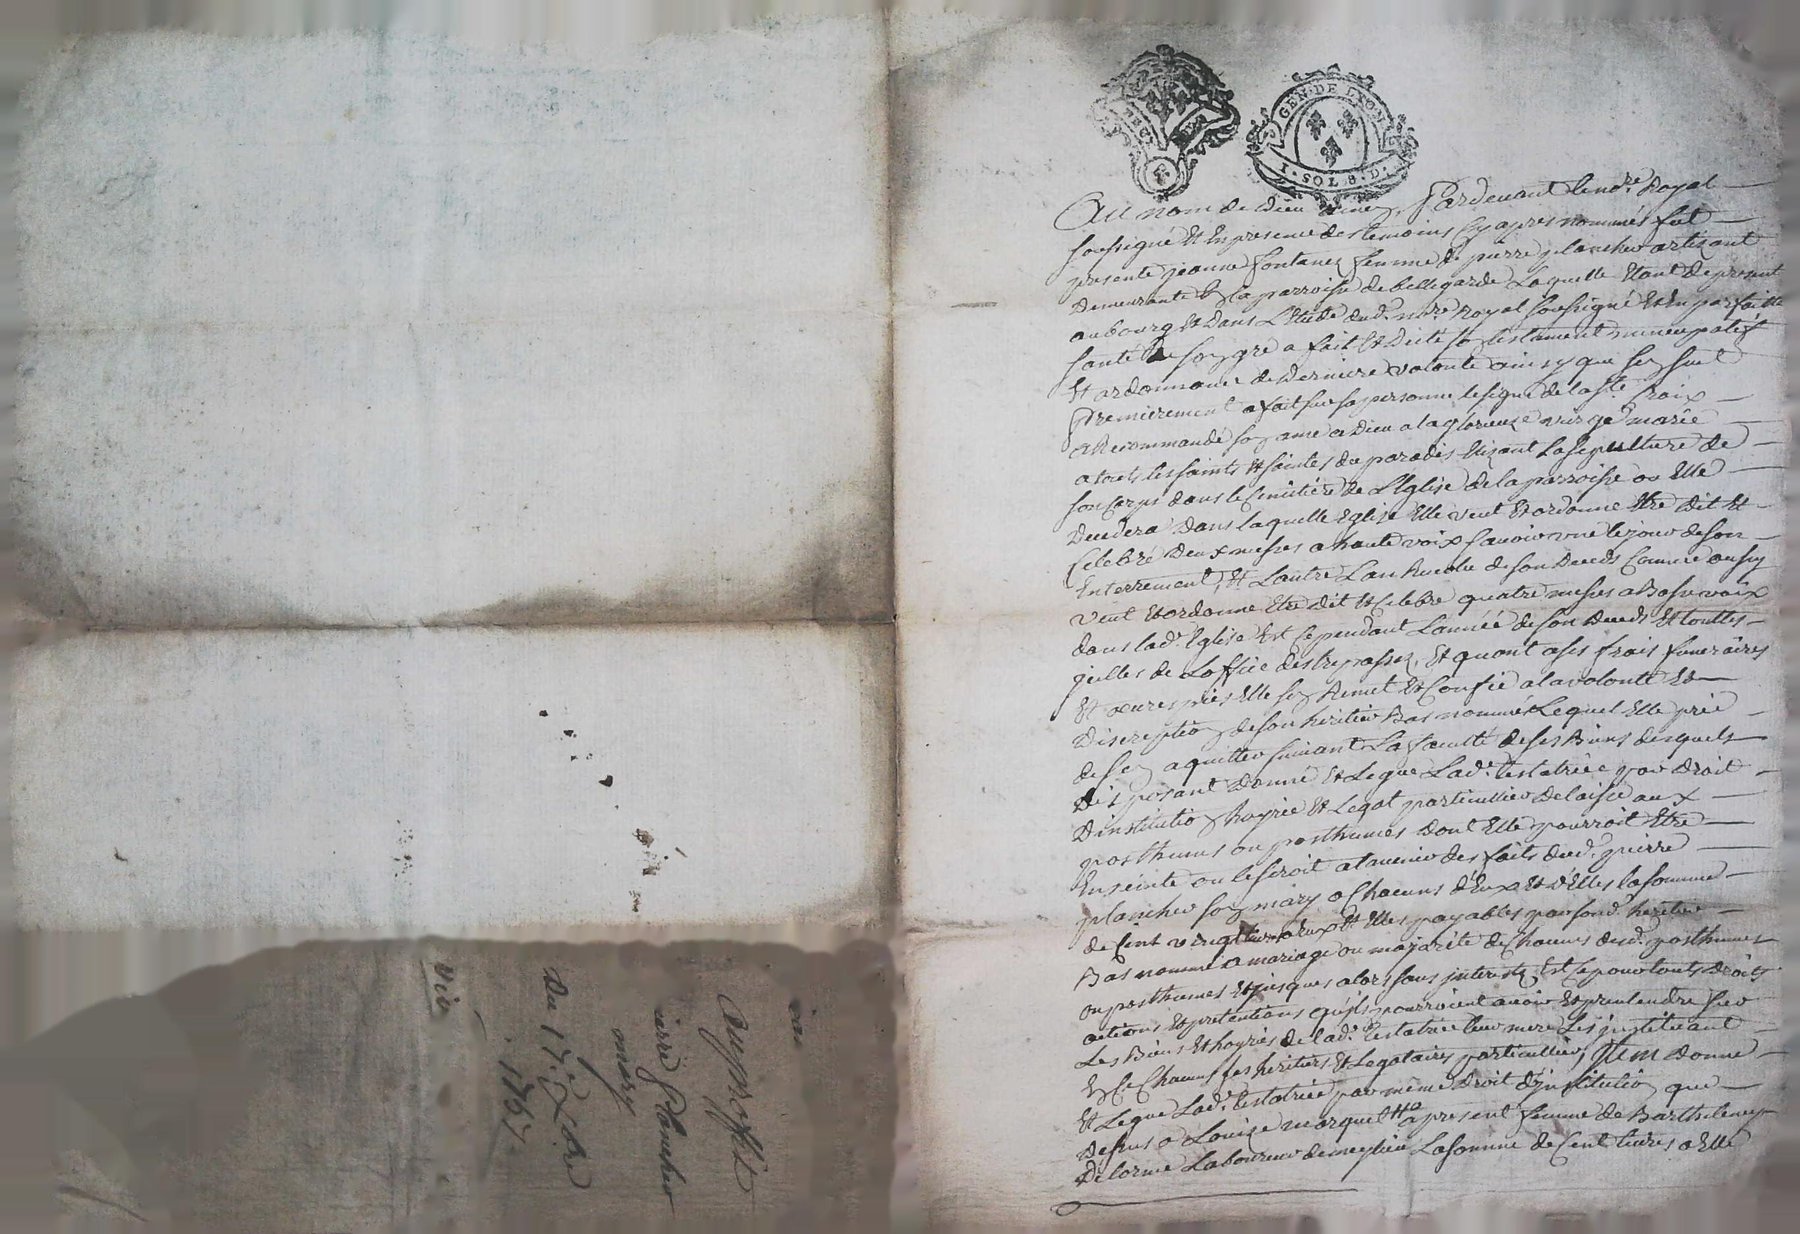 GEN. DE LYON
1. SOL 8. D.
Au nom de dieu amen, Pardevant le no.re Royal
soussigné Et En presence des temoins cy apres nommés fut
presente jeanne fontanez femme de pierre plancher artisant
Demeurante En la parroisse de bellegarde Laquelle Etant de present
au bourg Et dans L'Etude dud. no.re Royal soussigné Et En parfaitte
santé de son gré a fait Et Dicté son testament nuncupatif
Et ordonnance de Derniere volonté ainsy que sen suit
Premierement a fait sur sa personne le signe de la s.te Croix
a Recommandé son ame a Dieu a la glorieuse vierge marie
a touts les saints Et saintes du paradis Elizant La sepulture de
son Corps dans le Cimitiere de L'Eglise de la parroisse ou Elle
Decedera Dans laquelle Eglise Elle veut Et ordonne Etre dit Et
Celebré Deux messes a haute voix scavoir une le jour de son
Enterrement, Et L'autre L'an Revolu de son Deceds Comme aussy
veut Et ordonne Etre dit Et Celebré quatre messes a Basse voix
dans lad. Eglise Et Ce pendant L'année de son Deceds Et touttes
jcelles de L'office des trepassez, Et quant a ses frais funeraires
Et œuvres pies Elle sen Remet Et Confie a la volonté Et
Discreption de son heritier Bas nommé Lequel Elle prie
de sen aquitter suivant La faculté de ses Biens desquels
Disposant Donne Et Legue Lad. testatrice par Droit
D'institution hoyrie Et Legat particullier Delaissé aux
posthumes ou posthumes dont Elle pourroit Etre
Enceinte ou le seroit a l'avenir des faits dud. pierre
plancher son mary a Chacuns d'Eux Et d'Elles la somme
de Cent vingt livres a Eux Et Elles payables par sond. heritier
Bas nommé a mariage ou majorité de Chacuns desd. posthumes
ou posthumes Et jusques alors sans interets, Et Ce pour touts droits
actions Et pretentions qu'ils pourroient avoir Et pretendre sur
Les Biens Et hoyries de lad. testatrice leur mere Les jnstituant
En Ce Chacuns ses heritiers Et Legataires particulliers, Item donne
Et Legue Lad. testatrice par même Droit d'jnstitution que
Dessus a Louize marquet a present femme de Barthelemy
Delorme Laboureur de meylieu La somme de Cent livres a Elle
au proffit
pierre Plancher
mary
Du 17.e Xbre